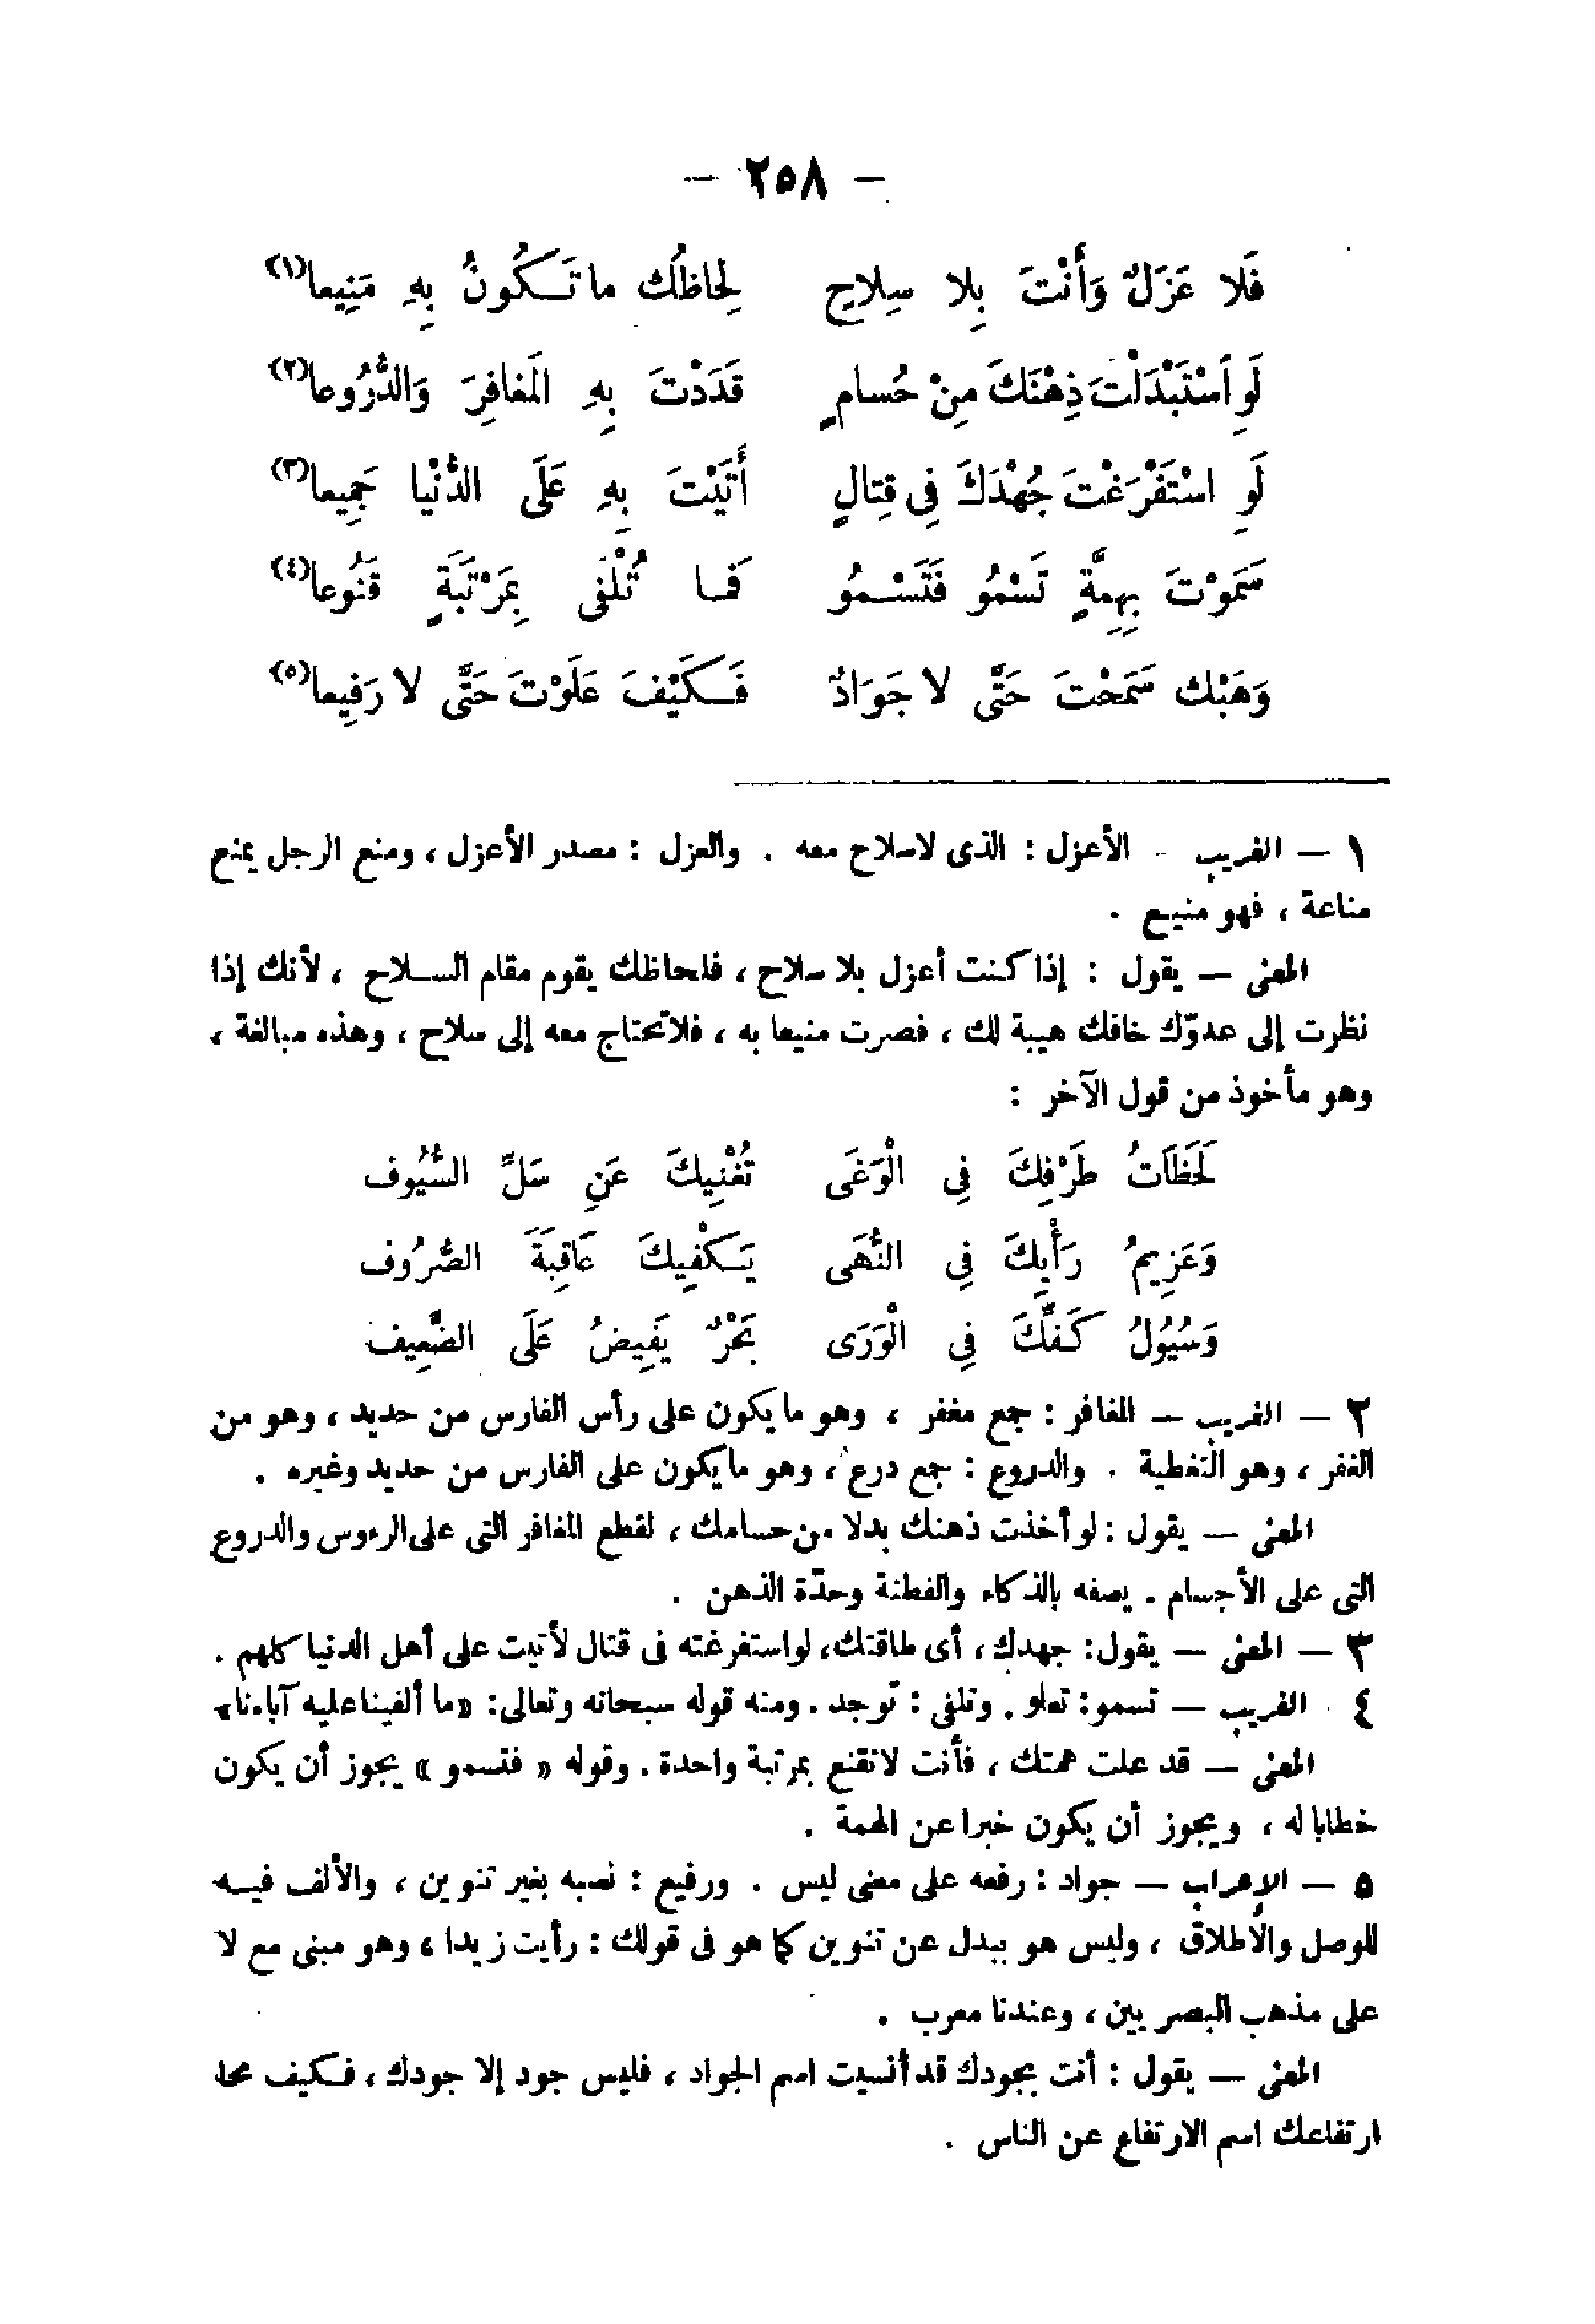 — ٢٥٨ —
فَلا عَزَلٌ وَأَنْتَ بِلا سِلاحٍ لِحاظُك ما تَكُونُ بِهِ مَنِيعا(١)
لَوِ اُسْتَبْدَلْتَ ذِهْنَكَ مِنْ حُسامٍ قَدَدْتَ بِهِ المَغافِرَ وَالدُّرُوعا(٢)
لَوِ اسْتَفْرَغْتَ جُهْدَكَ فِى قِتالٍ أَتَيْتَ بِهِ عَلَى الدُّنْيا جَمِيعا(٣)
سَمَوْتَ بِهِمَّةٍ تَسْمُو فَتَسْمُو فَما تُلْفَى بِمَرْتَبَةٍ قَنُوعا(٤)
وَهَبْك سَمَحْتَ حَتَّى لا جَوَادٌ فَكَيْفَ عَلَوْتَ حَتَّى لا رَفِيعا(٥)
١ — الغريب - الأعزل : الذى لاسلاح معه . والعزل : مصدر الأعزل ، ومنع الرجل يمنع
مناعة ، فهو منيع .
المعنى — يقول : إذا كنت أعزل بلا سلاح ، فلحاظك يقوم مقام السلاح ، لأنك إذا
نظرت إلى عدوّك خافك هيبة لك ، فصرت منيعا به ، فلاتحتاج معه إلى سلاح ، وهذه مبالغة ،
وهو مأخوذ من قول الآخر :
لَحَظَاتُ طَرْفِكَ فِى الْوَغَى تُغْنِيكَ عَنِ سَلِّ السُّيُوف
وَعَزِيمُ رَأْيِكَ فِى النُّهَى يَكْفِيكَ عَاقِبَةَ الصُّرُوف
وَسُيُولُ كَفِّكَ فِى الْوَرَى بَحْرٌ يَفِيضُ عَلَى الضَّعِيف
٢ — الغريب — المغافر : جمع مغفر ، وهو ما يكون على رأس الفارس من حديد ، وهو من
الغفر ، وهو التغطية . والدروع : جمع درع ، وهو ما يكون على الفارس من حديد وغيره .
المعنى — يقول : لو أخذت ذهنك بدلا من حسامك ، لقطع المغافر التى على الرءوس والدروع
التى على الأجسام . يصفه بالذكاء والفطنة وحدّة الذهن .
٣ — المعنى — يقول : جهدك ، أى طاقتك ، لو استفرغته فى قتال لأتيت على أهل الدنيا كلهم .
٤ . الغريب — تسمو : تعلو . وتلفى : توجد . ومنه قوله سبحانه وتعالى : «ما ألفينا عليه آباءنا»
المعنى — قد علت همتك ، فأنت لاتقنع بمرتبة واحدة . وقوله « فتسمو » يجوز أن يكون
خطابا له ، ويجوز أن يكون خبرا عن الهمة .
٥ — الإعراب — جواد : رفعه على معنى ليس . ورفيع : نصبه بغير تنوين ، والألف فيه
للوصل والاطلاق ، وليس هو ببدل عن تنوين كما هو فى قولك : رأيت زيدا ، وهو مبنى مع لا
على مذهب البصريين ، وعندنا معرب .
المعنى — يقول : أنت بجودك قد أنسيت اسم الجواد ، فليس جود إلا جودك ، فكيف محا
ارتفاعك اسم الارتفاع عن الناس .